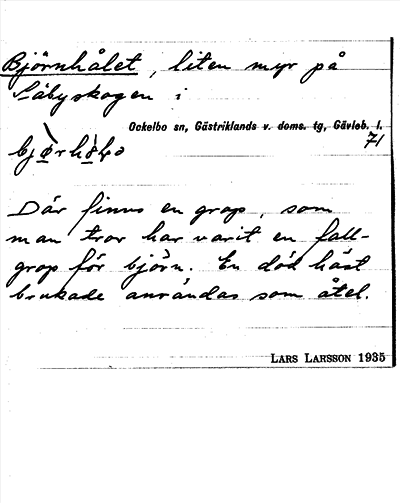 Björnhålet, liten myr på
Säbyskogen i
Ockelbo sn, Gästriklands v. doms. tg, Gävleb. l.
71
Där finns en grop, som
man tror har varit en fall-
grop för björn. En död häst
brukade användas som åtel.
LARS LARSSON 1935